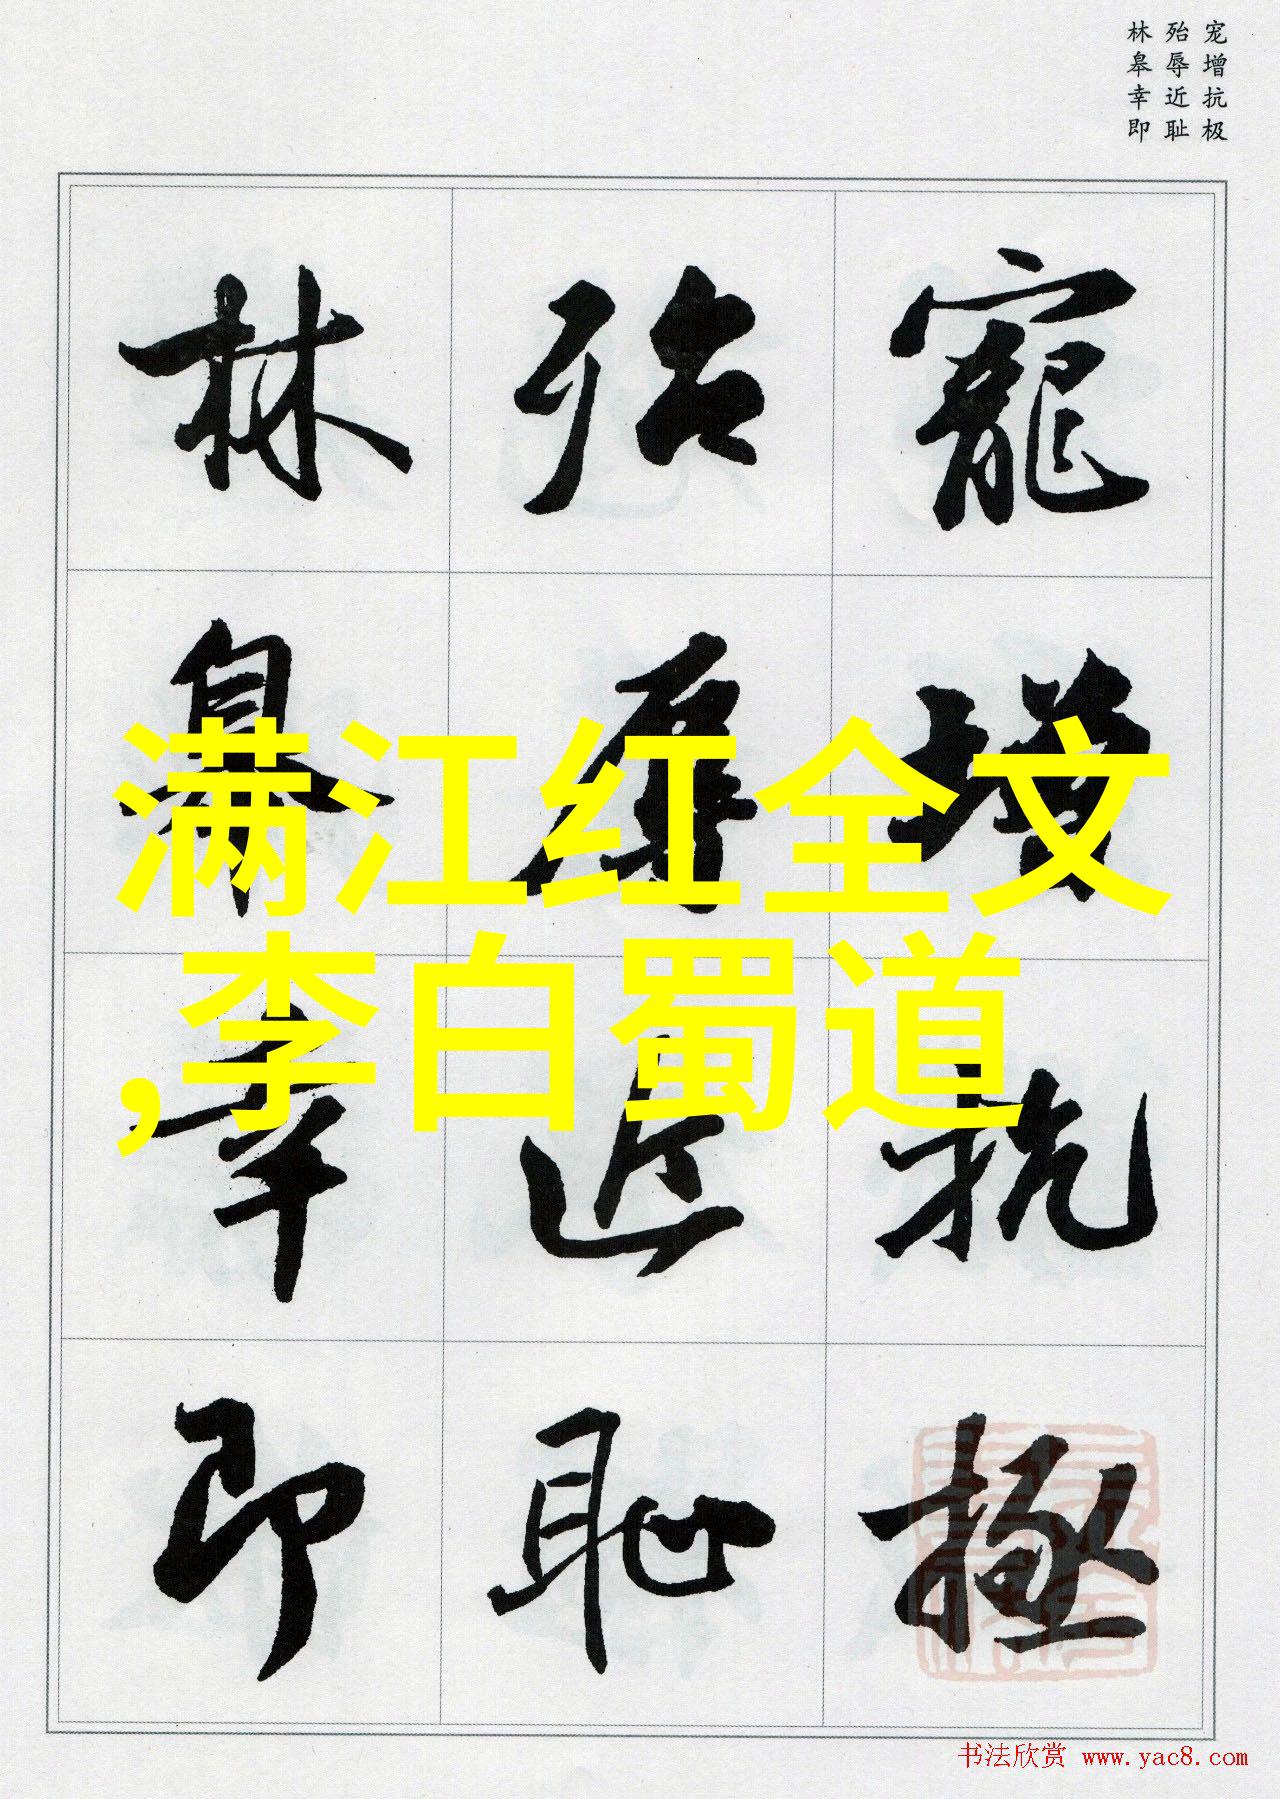 宠增抗极
殆辱近耻
林皋幸即
寵增抗極
殆辱近恥
林皋幸即
满江红全文
,李白蜀道
书法欣赏 www.yac8.com